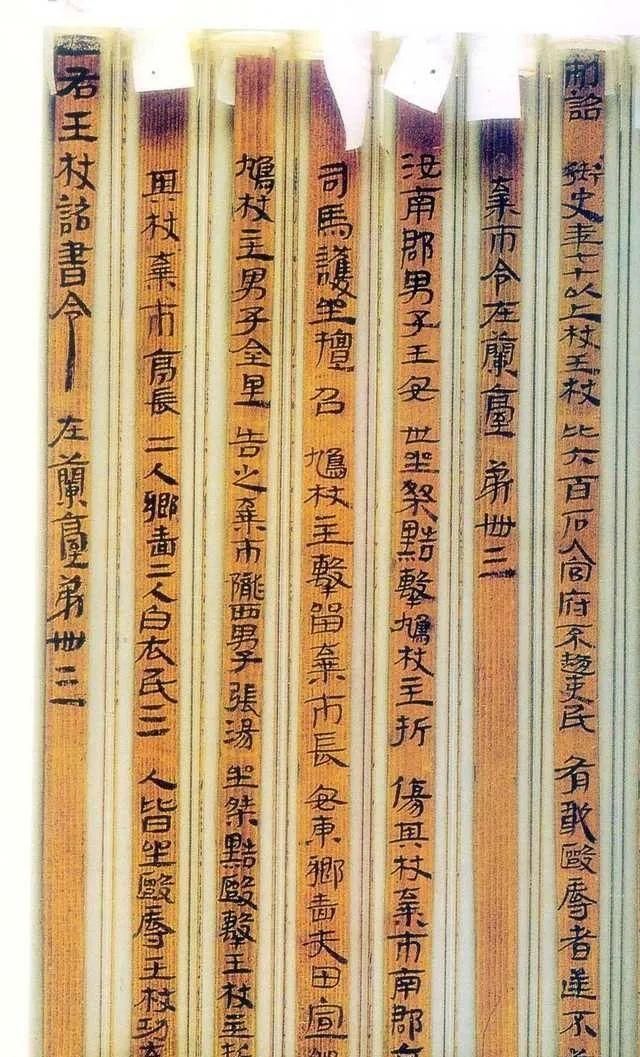 制詔御史年七十以上杖王杖比六百石入官府不趨吏民有敢毆辱者逆不
棄市令在蘭臺第卌三
汝南郡男子王安世坐桀黠擊鳩杖主折傷其杖棄市南郡
司馬護坐擅召鳩杖主擊留棄市長安東鄉嗇夫田宣
鳩杖主男子金里告之棄市隴西男子張湯坐桀黠毆擊王杖主折
其杖棄市亭長二人鄉嗇二人白衣民三人皆坐毆辱王杖功
右王杖詔書令在蘭臺第卌三